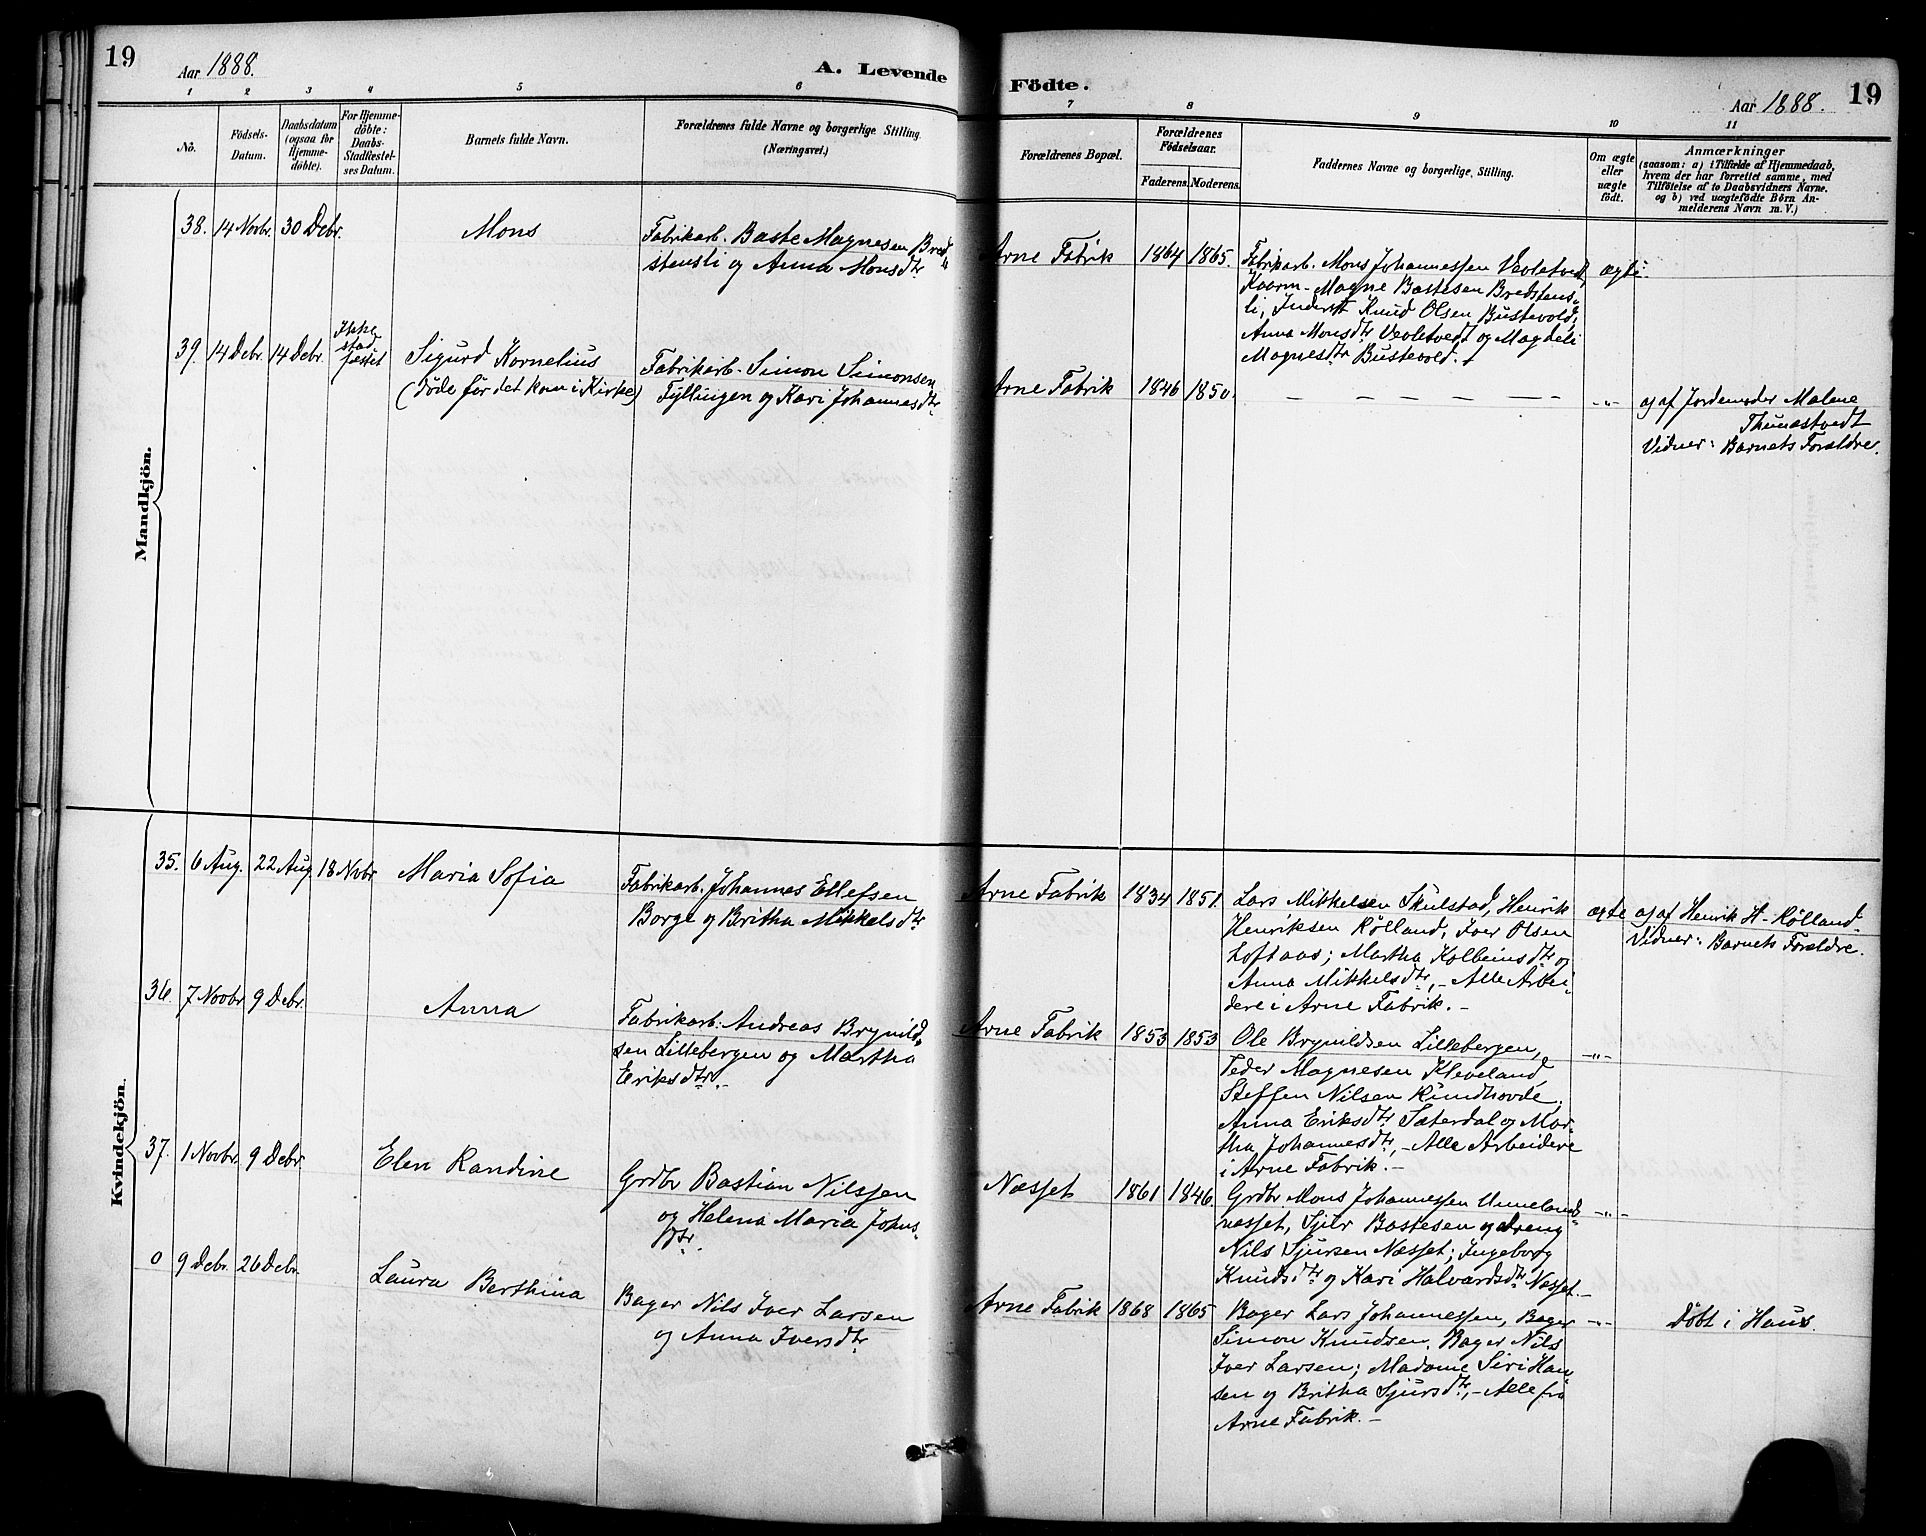 19
Aar 1888.
A. Levende
Födte.
Aar 1888.
19
1
2
3
4
5
6
7
8
9
10
11
No.
Födsels-
Datum.
Daabsdatum
(ogsaa for
Hjemme-
döbte).
For Hjemme-
döbte:
Daabs-
Stadfæstel-
ses Datum.
Barnets fulde Navn.
Forældrenes fulde Navne og borgerlige Stilling.
(Næringsvei.)
Forældrenes Bopæl.
Forældrenes
Födselsaar.
Faderens.
Moderens.
Faddernes Navne og borgerlige Stilling.
Om ægte
eller
uægte
födt.
Anmærkninger
(saasom: a) i Tilfælde af Hjemmedaab,
hvem der har forrettet samme, med
Tilföielse af to Daabsvidners Navne,
og b) ved uægtefödte Börn An-
melderens Navn m. V.)
Mandkjön.
38.
14 Novbr.
30 Debr.
Mons
Fabrikarb. Baste Magnesen Bred-
stensli og Anna Monsdtr
Arne Fabrik
1864
1865.
Fabrikarb. Mons Johannessen Veoletvedt
Kaarm. Magne Bastesen Bredstens-
li, Inderst Knud Olsen Bustevold,
Anna Monsdtr Veoletvedt og Magdeli
Magnesdtr Bustevold.
ægte
39.
14 Debr.
14 Debr.
Ikke
stad
fæstet
Sigurd Kornelius
(døde før det kom i Kirke)
Fabrikarb. Simon Simonsen
Fyllingen og Kari Johannesdtr
Arne Fabrik
1846
1850.
— — — — — —
-"-
aj af Jordemoder Malene
Thunæstvedt
Vidner: Barnets Forældre.
Kvindekjön.
35.
6 Aug.
22 Aug
18 Novbr
Maria Sofia
Fabrikarb. Johannes Ellefsen
Borge og Britha Mikkelsdtr
Arne Fabrik
1834
1851.
Lars Mikkelsen Skulstad, Henrik
Henriksen Rølland, Iver Olsen
Loftaas; Martha Kolbeinsdtr og
Anna Mikkelsdtr, - Alle Arbei-
dere i Arne Fabrik. -
ægte
aj af Henrik H. Rølland.
Vidner: Barnets Forældre.
36.
7 Novbr
9 Debr.
Anna
Fabrikarb. Andreas Brynild-
sen Lillebergen og Martha
Eriksdtr. -
Arne Fabrik
1853
1853
Ole Brynildsen Lillebergen,
Peder Magnesen Kleveland,
Steffen Nilsen Rundhovde,
Anna Eriksdtr Sæterdal og Mar-
tha Johannesdtr, - Alle Arbeidere
i Arne Fabrik. -
-"-
37.
1 Novbr.
9 Debr
Elen Randine
Grdbr Bastian Nilssen
og Helena Maria Johns-
dtr.
Næsset
1861
1846.
Grdbr Mons Johannessen Unneland-
næsset, Sjur Bastesen og dreng
Nils Sjursen Næsset; Ingeborg
Knudsdtr og Kari Halvardsdtr Næsset. -
-"-
0
9 Debr.
26 Debr.
Laura Berthina
Bager Nils Iver Larsen
og Anna Iversdtr
Arne Fabrik
1868
1865
Bager Lars Johannessen, Bager
Simon Knudsen, Bager Nils
Iver Larsen; Madame Siri Han-
sen og Britha Sjursdtr, - Alle fra
Arne Fabrik. -
-"-
Døbt i Haus.